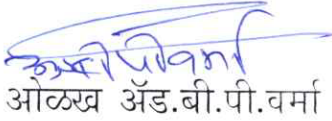 ओळख ॲड.बी.पी.वर्मा